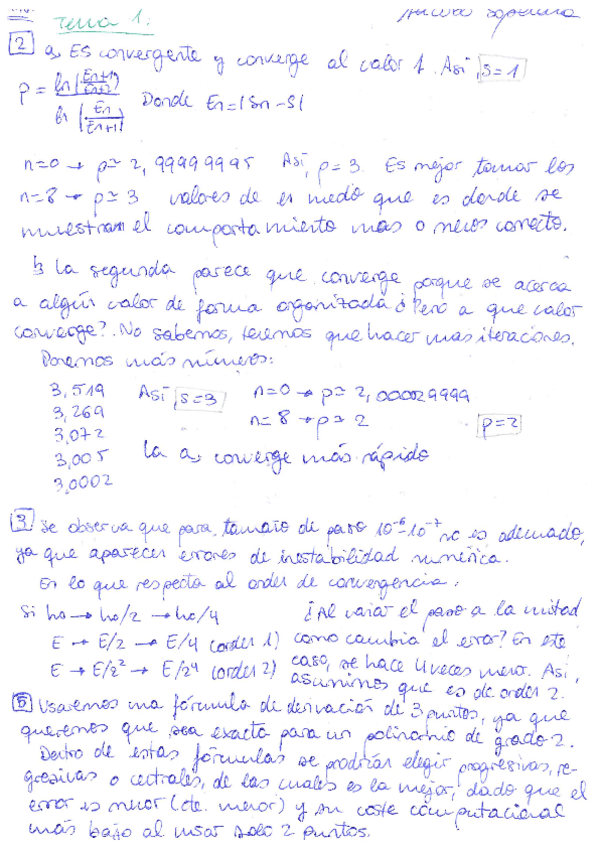 Tema 1.
2 a, Es convergente y converge al valor 1. Así, S=1
p = ln(En+1/En+2) / ln(En/En+1) Donde En=|Sn-S|
n=0 → p≃ 2,99999995 Así, p=3. Es mejor tomar los
n=8 → p≃ 3 valores de en medio que es donde se
muestran el comportamiento mas o menos correcto.
b, La segunda parece que converge porque se acerca
a algún valor de forma organizada ¿Pero a que valor
converge?. No sabemos, tenemos que hacer mas iteraciones.
Ponemos más números:
3,519 Así, S=3 n=0 → p≃ 2,000029999
3,269 n=8 → p≃ 2 p=2
3,072
3,005 La a, converge más rápido
3,0002
3 Se observa que para tamaño de paso 10⁻⁶-10⁻⁷ no es adecuado,
ya que aparecen errores de inestabilidad numérica.
En lo que respecta al orden de convergencia:
Si ho → ho/2 → ho/4 ¿Al variar el paso a la mitad
E → E/2 → E/4 (orden 1) como cambia el error? En este
E → E/2² → E/2⁴ (orden 2) caso, se hace 4 veces menor. Así,
asumimos que es de orden 2.
5 Usaremos una fórmula de derivación de 3 puntos, ya que
queremos que sea exacta para un polinomio de grado 2.
Dentro de estas fórmulas se podrían elegir progresivas, re-
gresivas o centrales, de las cuales es la mejor, dado que el
error es menor (cte. menor) y su coste computacional
más bajo al usar solo 2 puntos.